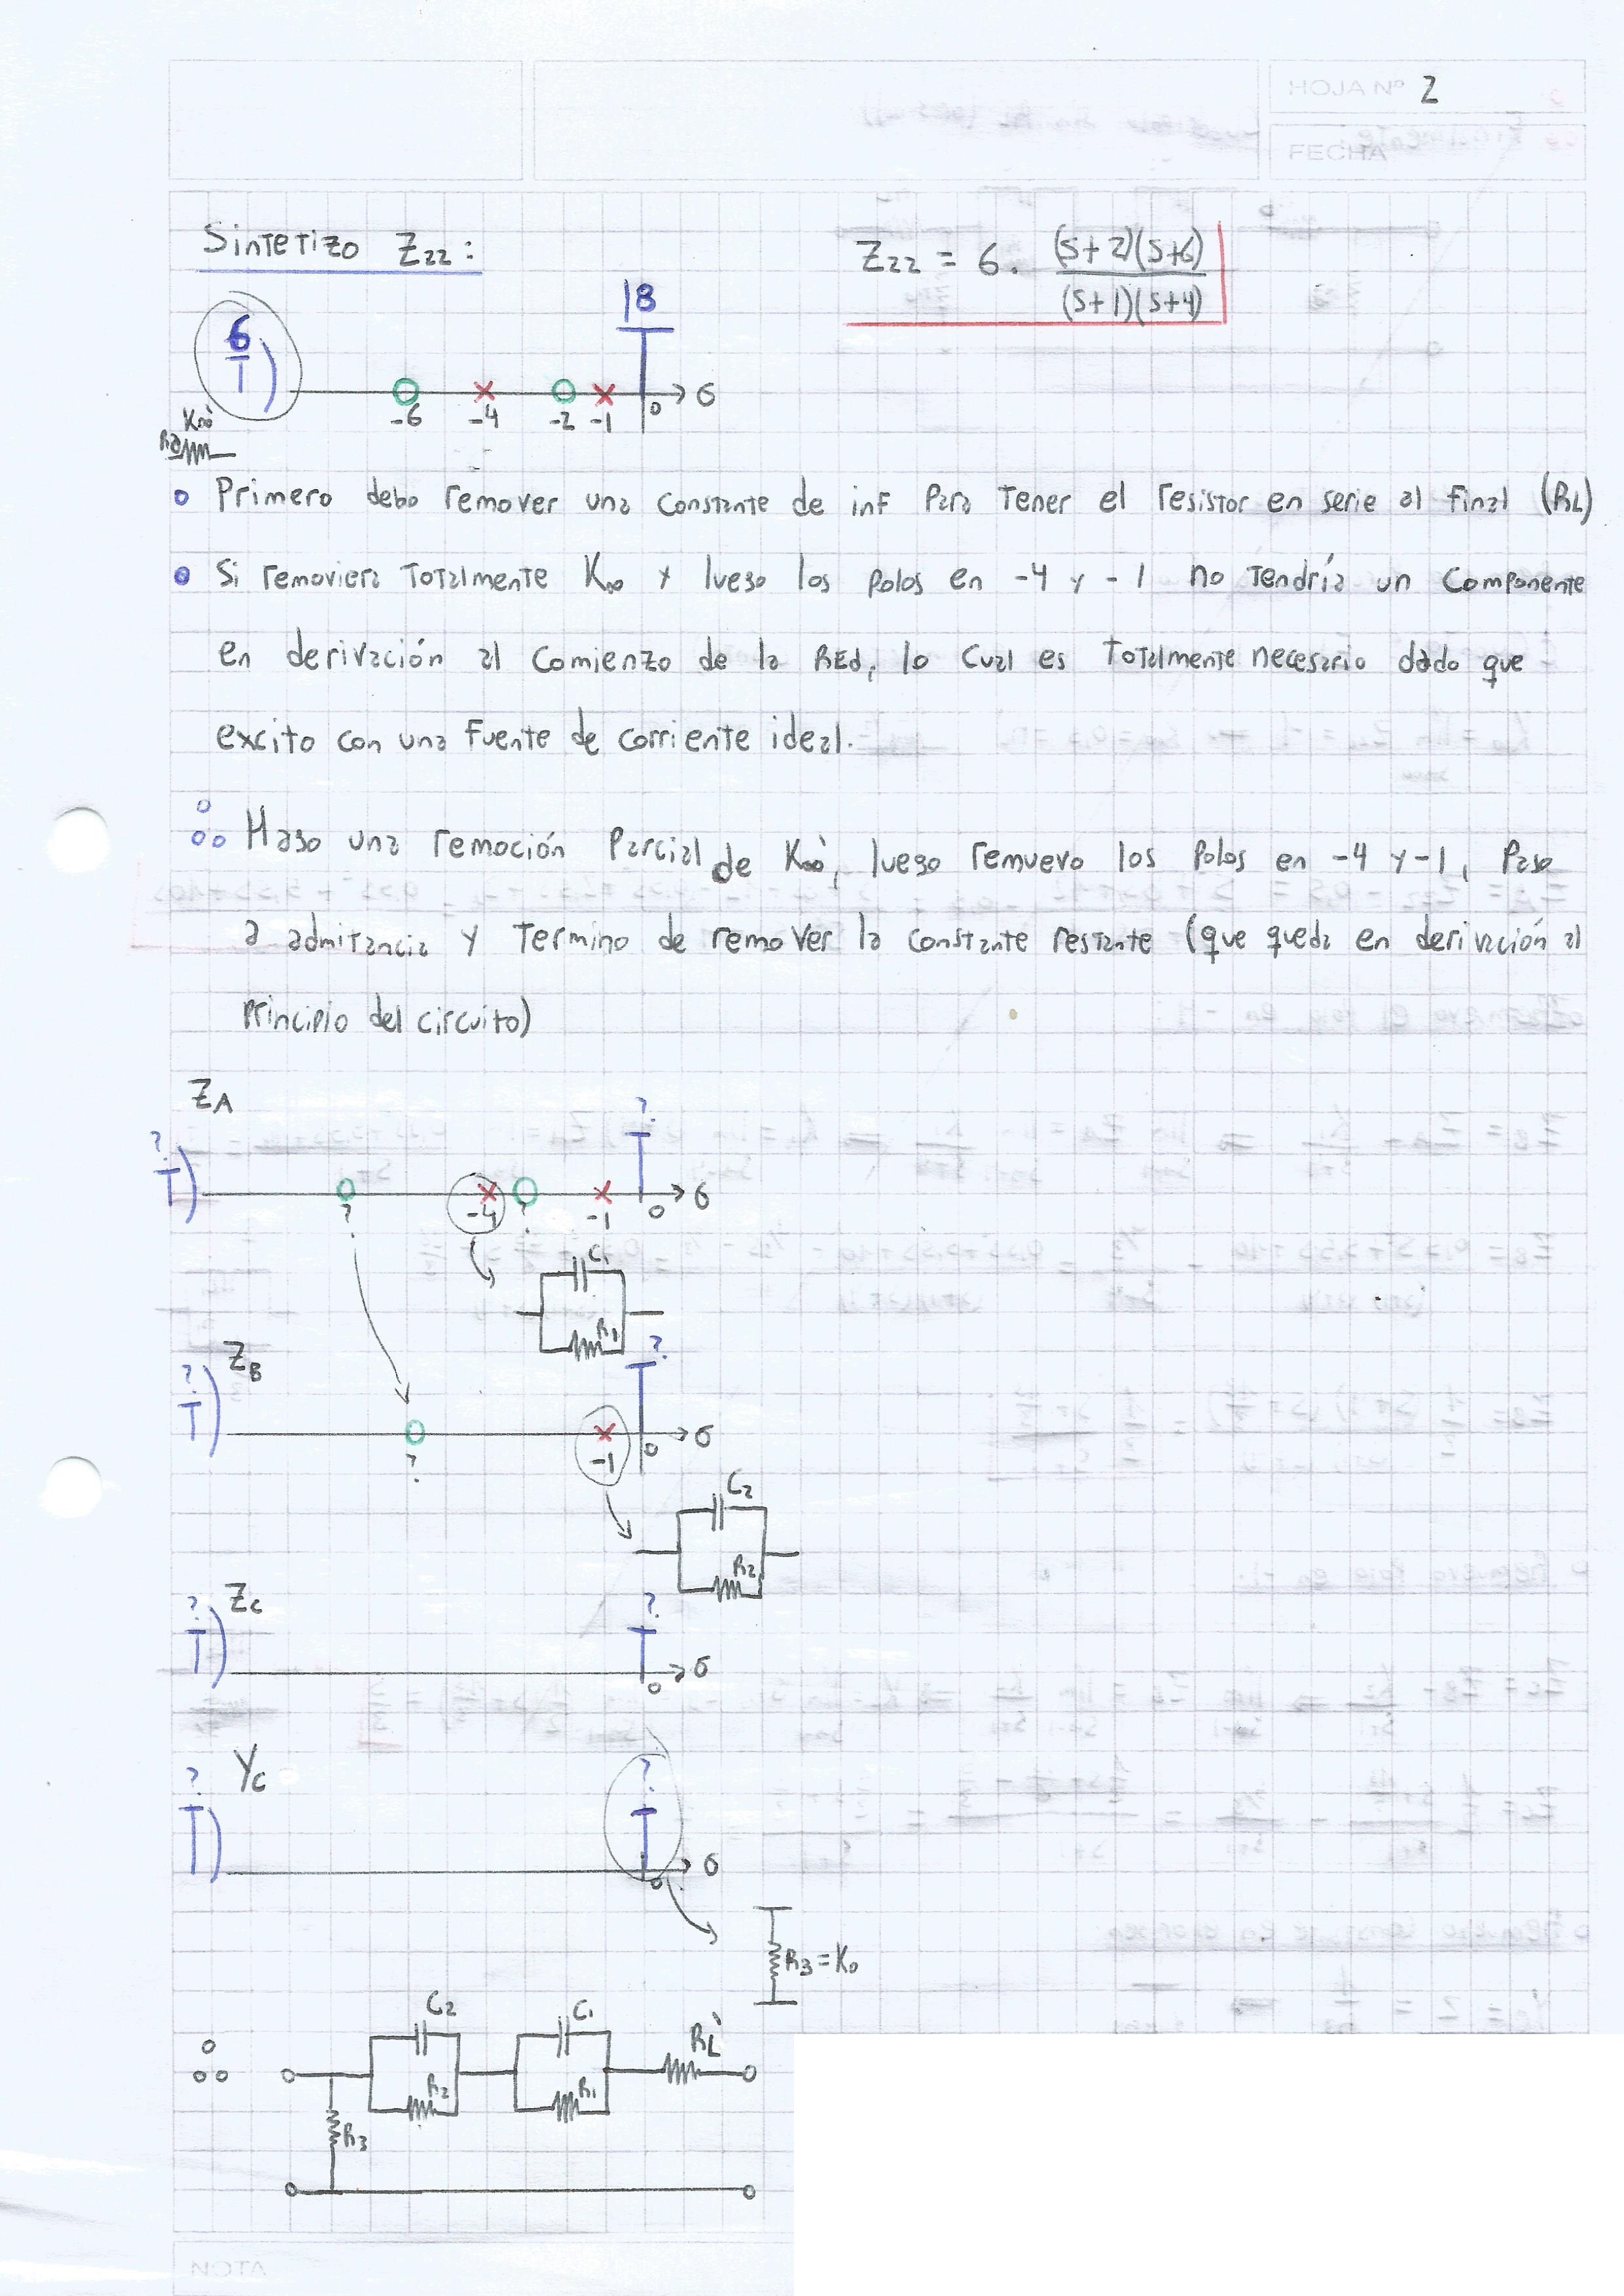 HOJA Nº 2
FECHA
Sintetizo Z22:
Z22 = 6. (s+2)(s+6) / (s+1)(s+4)
18
6
-6 -4 -2 -1 0 σ
K∞'
o Primero debo remover una constante de inf para tener el resistor en serie al final (RL)
o Si removiera totalmente K∞ y luego los polos en -4 y -1 no tendría un componente
en derivación al comienzo de la REd, lo cual es totalmente necesario dado que
excito con una fuente de corriente ideal.
∴ Hago una remoción parcial de K∞', luego remuevo los polos en -4 y -1, paso
a admitancia y termino de remover la constante restante (que queda en derivación al
principio del circuito)
ZA
? ?
? -4 ? -1 0 σ
C1
R1
ZB
? ?
? -1 0 σ
C2
R2
ZC
? ?
0 σ
YC
? ?
0 σ
R3=K0
∴
C2 C1 RL'
R2 R1
R3
NOTA